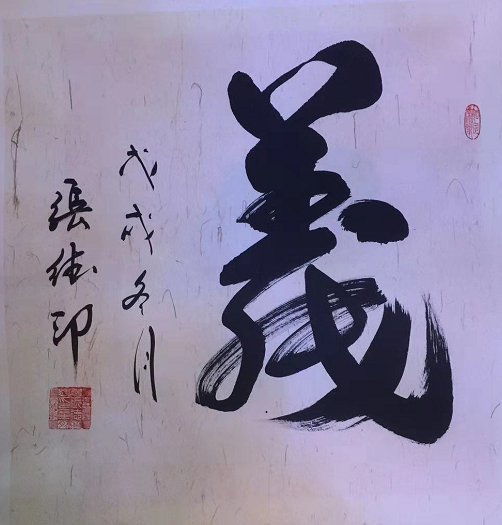 義
戊戌冬月
張德印